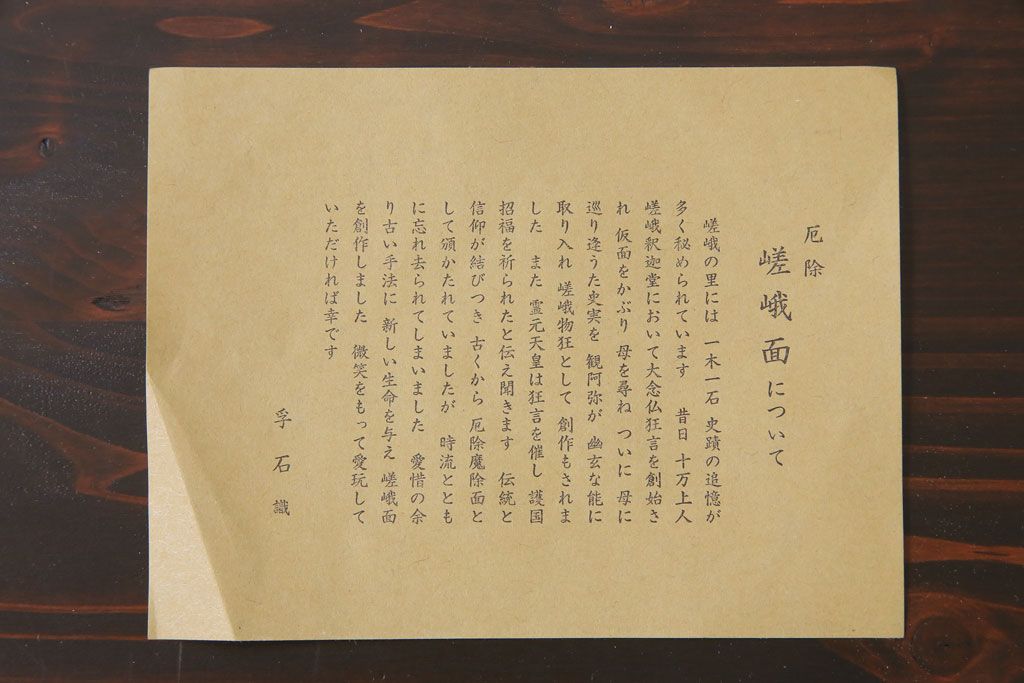 厄除
嵯峨面について
嵯峨の里には 一木一石 史蹟の追憶が
多く秘められています 昔日 十万上人
嵯峨釈迦堂において大念仏狂言を創始さ
れ 仮面をかぶり 母を尋ね ついに 母に
巡り逢うた史実を 観阿弥が 幽玄な能に
取り入れ 嵯峨物狂として 創作もされま
した また 霊元天皇は狂言を催し 護国
招福を祈られたと伝え聞きます 伝統と
信仰が結びつき 古くから 厄除魔除面と
して頒かたれていましたが 時流ととも
に忘れ去られてしまいました 愛惜の余
り古い手法に 新しい生命を与え 嵯峨面
を創作しました 微笑をもって愛玩して
いただければ幸です
孚石識